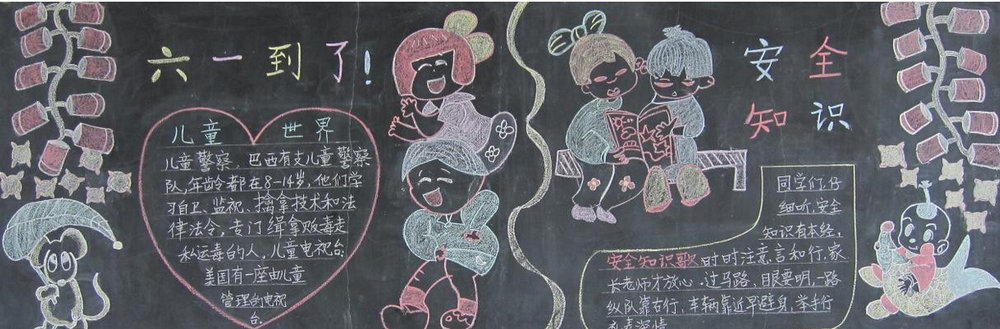 六一到了!
儿童世界
儿童警察、巴西有支儿童警察
队,年龄都在8-14岁,他们学
习自卫、监视、擒拿技术和法
律法令,专门缉拿贩毒走
私运毒的人,儿童电视台:
美国有一座由儿童
管理的电视
台.
安全
知识
同学们,仔
细听,安全
知识有本经,
安全知识歌 时时注意言和行.家
长老师才放心.过马路,眼要明,一路
纵队靠右行,车辆靠近早避身,举手行